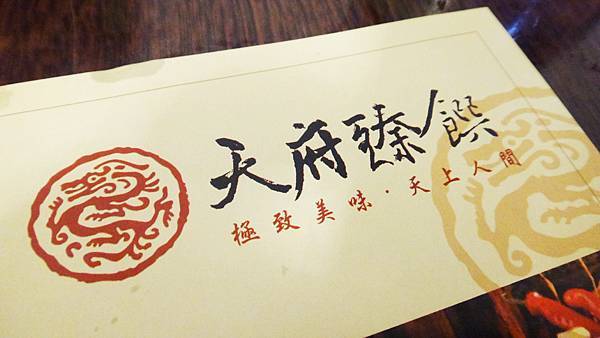 天府臻饌
極致美味·天上人間